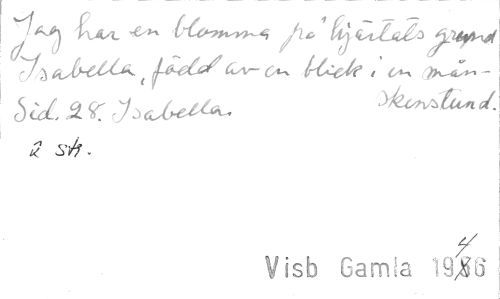 Jag har en blomma på hjärtats grund
Isabella, född av en blick i en mån-
skenstund.
Sid. 28. Isabella.
2 str.
Visb Gamla 1946